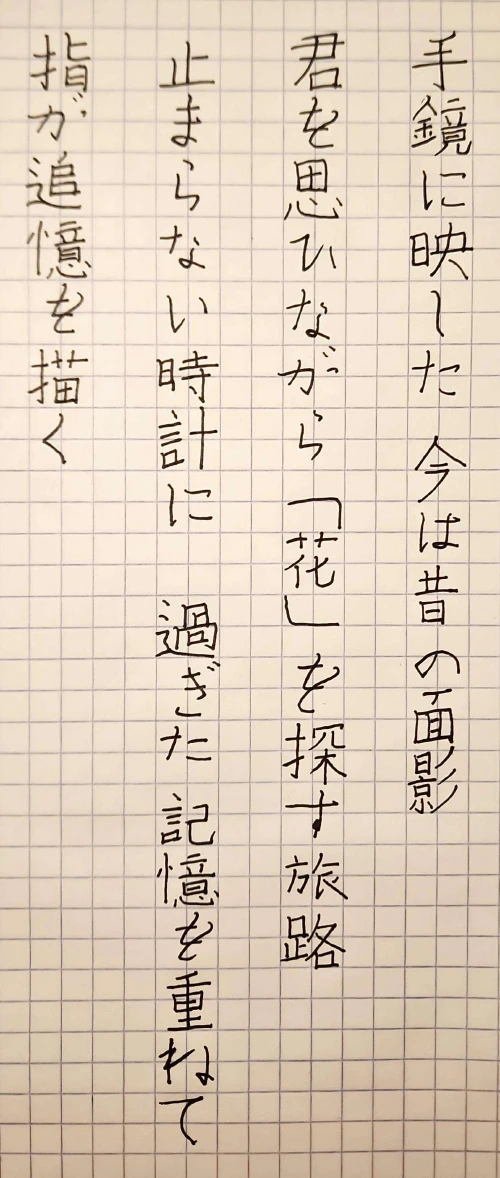 手鏡に映した 今は昔の面影
君を思ひながら「花」を探す旅路
止まらない時計に 過ぎた記憶を重ねて
指が追憶を描く